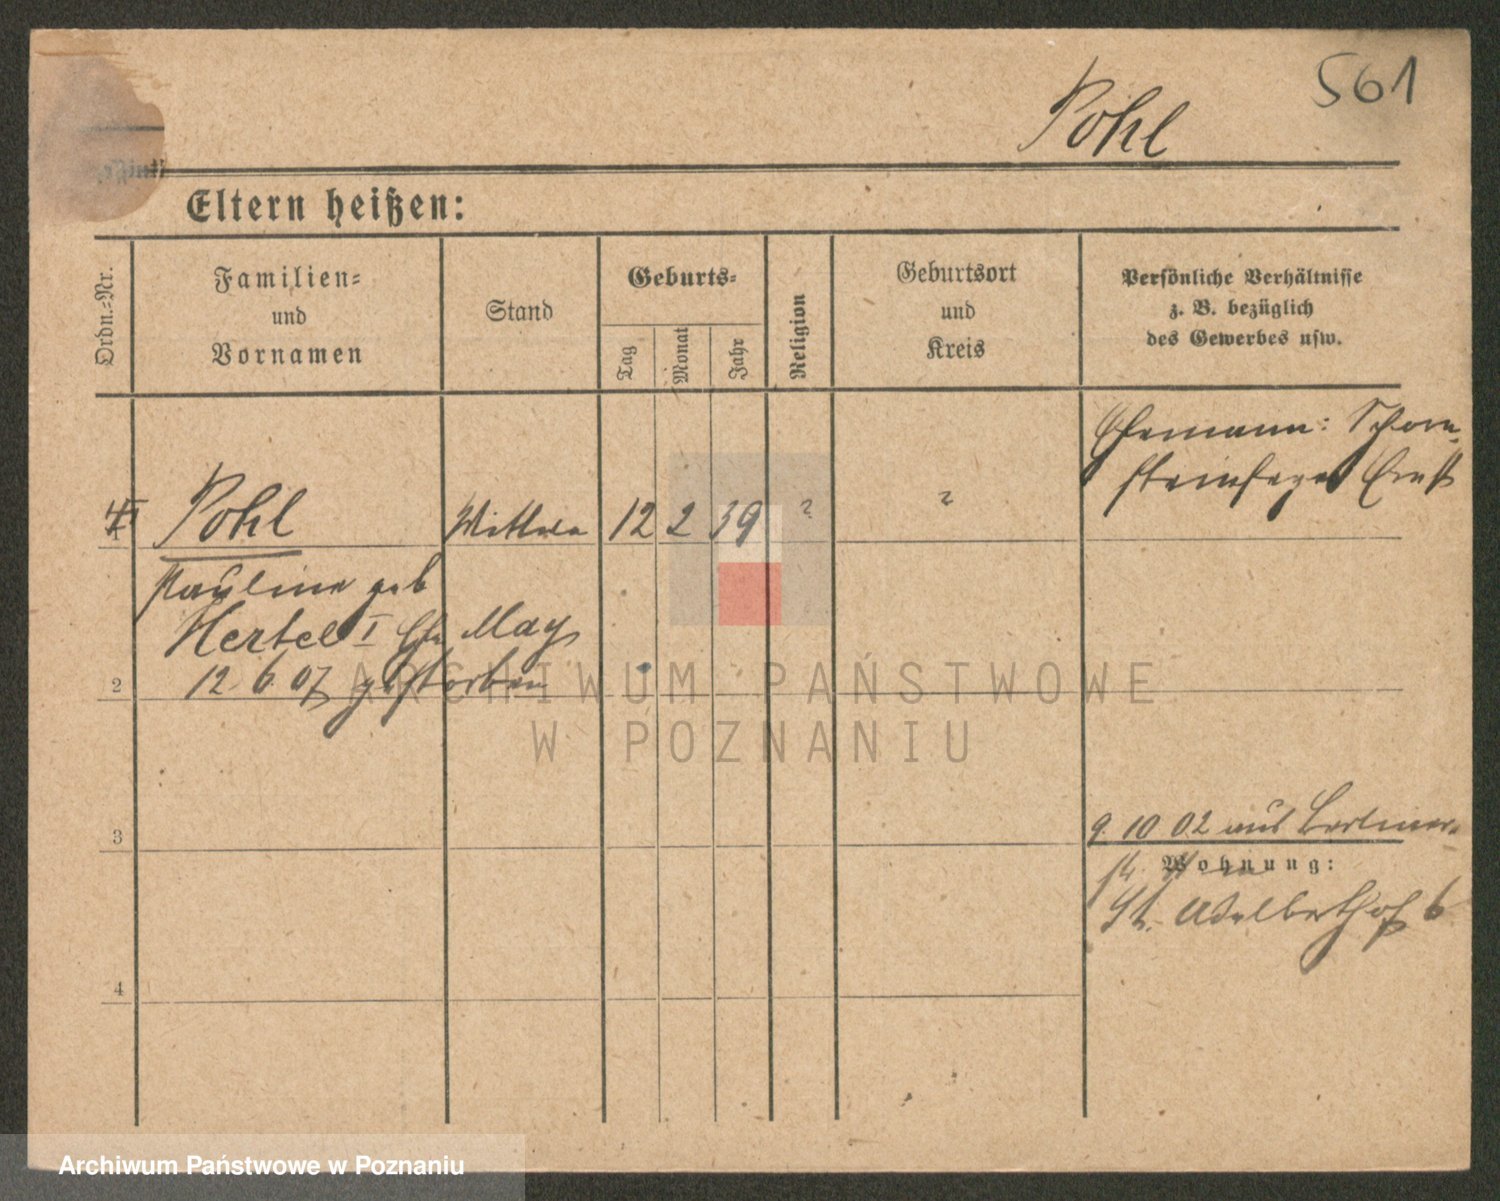 561
Pohl
Eltern heißen:
Ordn.-Nr.
Familien-
und
Vornamen
Stand
Geburts-
Tag
Monat
Jahr
Religion
Geburtsort
und
Kreis
Persönliche Verhältnisse
z. B. bezüglich
des Gewerbes usw.
Ehemann: Schorn-
steinfeger Ernst
Pohl Wittwe 12 2 39 ? ?
Pauline geb
Hertel I Ehe May
2 12 6 07 gestorben
ARCHIWUM PAŃSTWOWE
W POZNANIU
3
9. 10 02 aus Berliner-
Wohnung:
St. Adalberthof 6
4
Archiwum Państwowe w Poznaniu